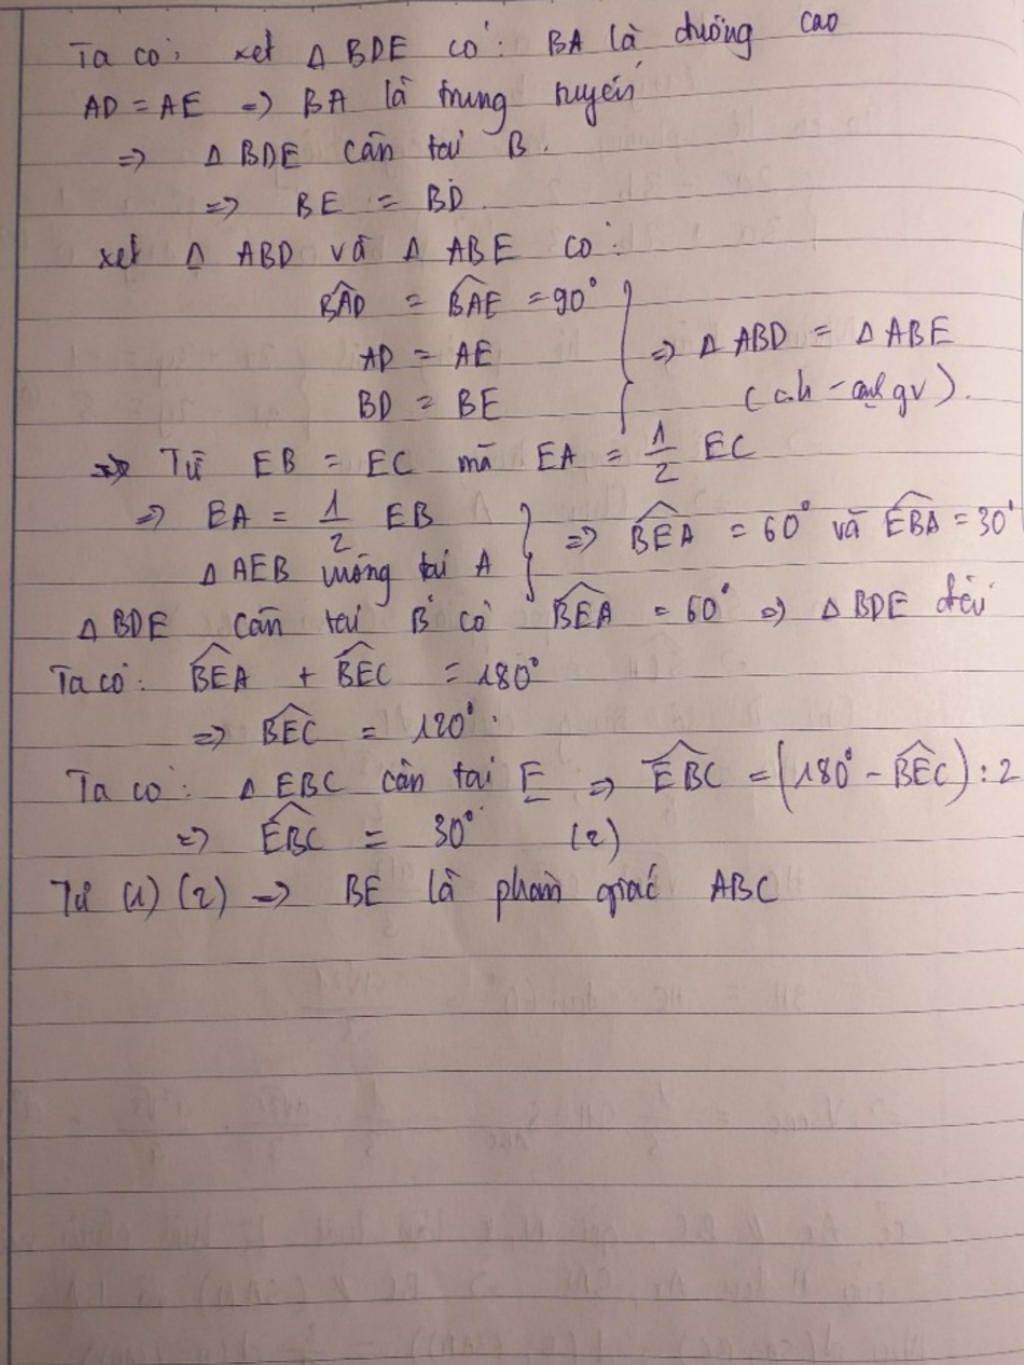 Ta có: xét Δ BDE có: BA là đường cao
AD = AE => BA là trung tuyến
=> Δ BDE cân tại B.
=> BE = BD.
xét Δ ABD và Δ ABE có:
\widehat{BAD} = \widehat{BAE} = 90°
AD = AE
BD = BE
} => Δ ABD = Δ ABE
(ch - cạnh gv).
=> Từ EB = EC mà EA = 1/2 EC
=> EA = 1/2 EB
Δ AEB vuông tại A
} => \widehat{BEA} = 60° và \widehat{EBA} = 30°
Δ BDE cân tại B có \widehat{BEA} = 60° => Δ BDE đều
Ta có: \widehat{BEA} + \widehat{BEC} = 180°
=> \widehat{BEC} = 120°.
Ta có: Δ EBC cân tại E => \widehat{EBC} = (180° - \widehat{BEC}) : 2
=> \widehat{EBC} = 30° (2)
Từ (1) (2) => BE là phân giác ABC